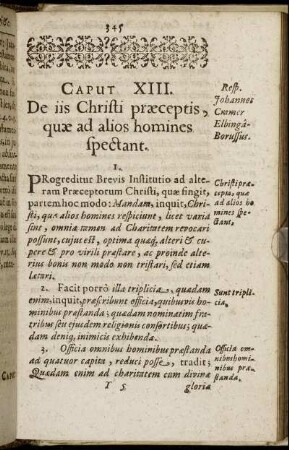 345
CAPUT XIII.
De iis Christi præceptis,
quæ ad alios homines
spectant.
Resp.
Johannes
Cramer
Elbingâ-
Borussus.
1.
PRogreditur Brevis Institutio ad alte-
ram Præceptorum Christi, quæ fingit,
partem hoc modo: Mandata, inquit, Chri-
sti, quæ alios homines respiciunt, licet varia
sint, omnia tamen ad Charitatem revocari
possunt, cujus est, optima quæq, alteri & cu-
pere & pro virili præstare, ac proinde alte-
rius bonis non modo non tristari, sed etiam
lætari.
Christi præ-
cepta, quæ
ad alios ho-
mines spe-
ctant,
2. Facit porrò illa triplicia, quædam
enim, inquit, præscribunt officia, quibusvis ho-
minibus præstanda; quædam nominatim fra-
tribus seu ejusdem religionis consortibus; quæ-
dam deniq, inimicis exhibenda.
Sunt tripli-
cia.
3. Officia omnibus hominibus præstanda
ad quatuor capita, reduci posse, tradit:
Quædam enim ad charitatem cum divinæ
Officia om-
nibus homi-
nibus præ-
standa.
Y 5
gloria